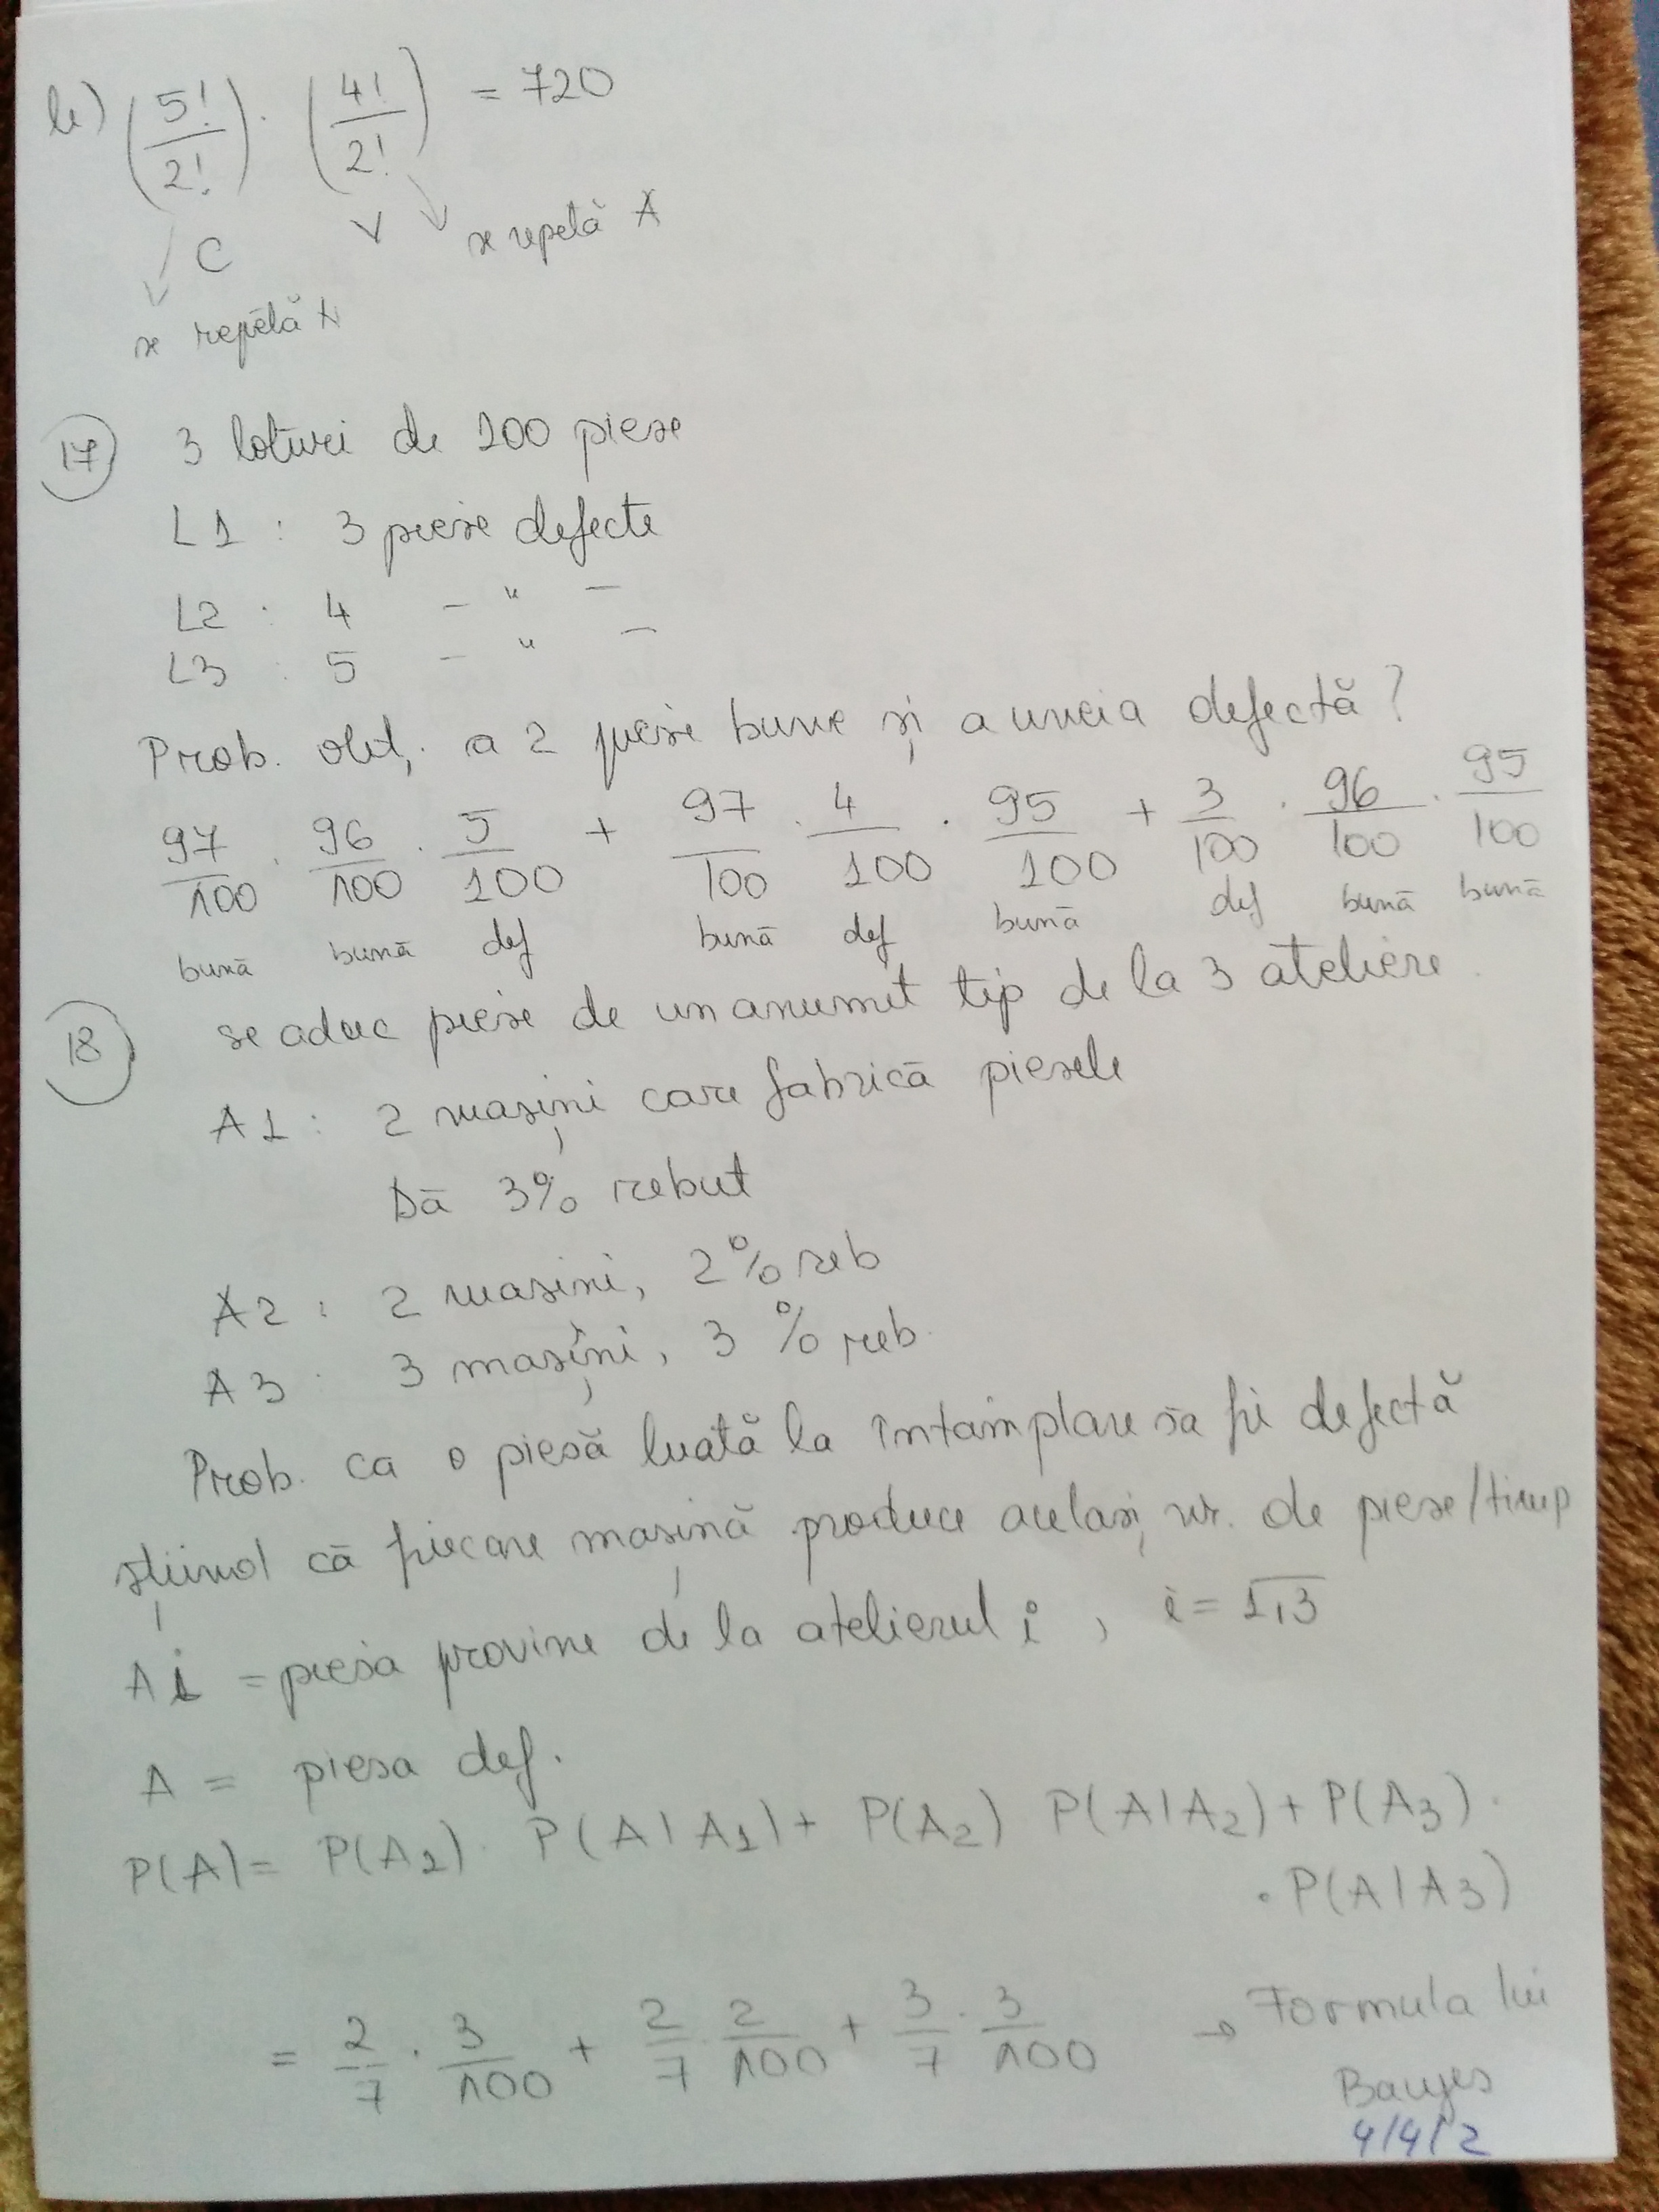 b) (5!/2!) · (4!/2!) = 720
C V se repetă A
se repetă N
17 3 loturi de 100 piese
L1 : 3 piese defecte
L2 : 4 – " –
L3 : 5 – " –
Prob. obț. a 2 piese bune și a uneia defectă?
97/100 · 96/100 · 5/100 + 97/100 · 4/100 · 95/100 + 3/100 · 96/100 · 95/100
bună bună def bună def bună def bună bună
18 se aduc piese de un anumit tip de la 3 ateliere.
A1 : 2 mașini care fabrică piesele
Dă 3% rebut
A2 : 2 masini, 2% reb
A3 : 3 mașini, 3% reb.
Prob. ca o piesă luată la întâmplare să fi defectă
știind că fiecare mașină produce același nr. de piese/timp
Ai = piesa provine de la atelierul i , i = 1,3
A = piesa def.
P(A) = P(A1) · P(A|A1) + P(A2) P(A|A2) + P(A3) ·
· P(A|A3)
= 2/7 · 3/100 + 2/7 · 2/100 + 3/7 · 3/100 → Formula lui
Bayes
4/4/2